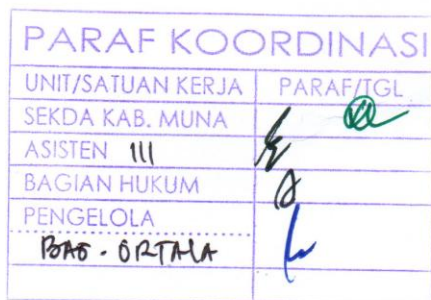 PARAF KOORDINASI
UNIT/SATUAN KERJA PARAF/TGL
SEKDA KAB. MUNA
ASISTEN III
BAGIAN HUKUM
PENGELOLA
BAG - ORTALA